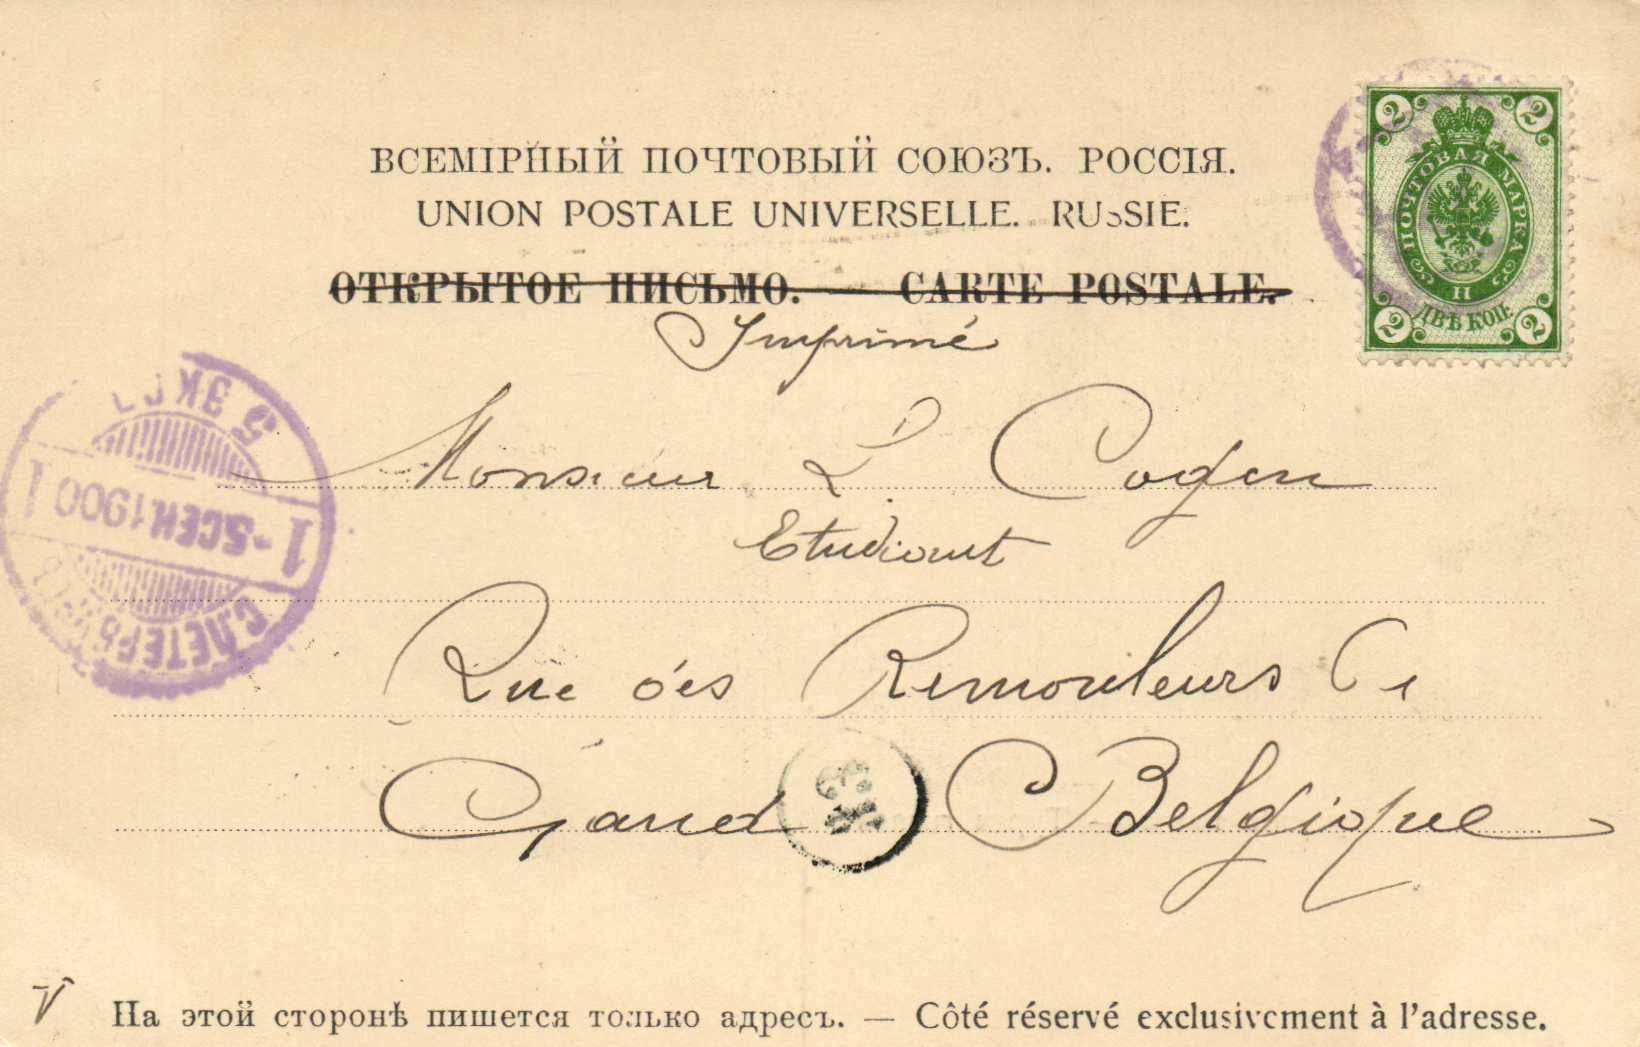 ВСЕМІРНЫЙ ПОЧТОВЫЙ СОЮЗЪ. РОССІЯ.
UNION POSTALE UNIVERSELLE. RUSSIE.
ОТКРЫТОЕ ПИСЬМО. — CARTE POSTALE.
Imprimé
2 2
ПОЧТОВАЯ МАРКА
ДВѢ КОП.
2 2
5 ЭКСП
1 -5 СЕН 1900 1
С.ПЕТЕРБ
Monsieur L. Cogen
Etudiant
Rue des Remouleurs
Gand Belgique
На этой сторонѣ пишется только адресъ. — Côté réservé exclusivement à l'adresse.